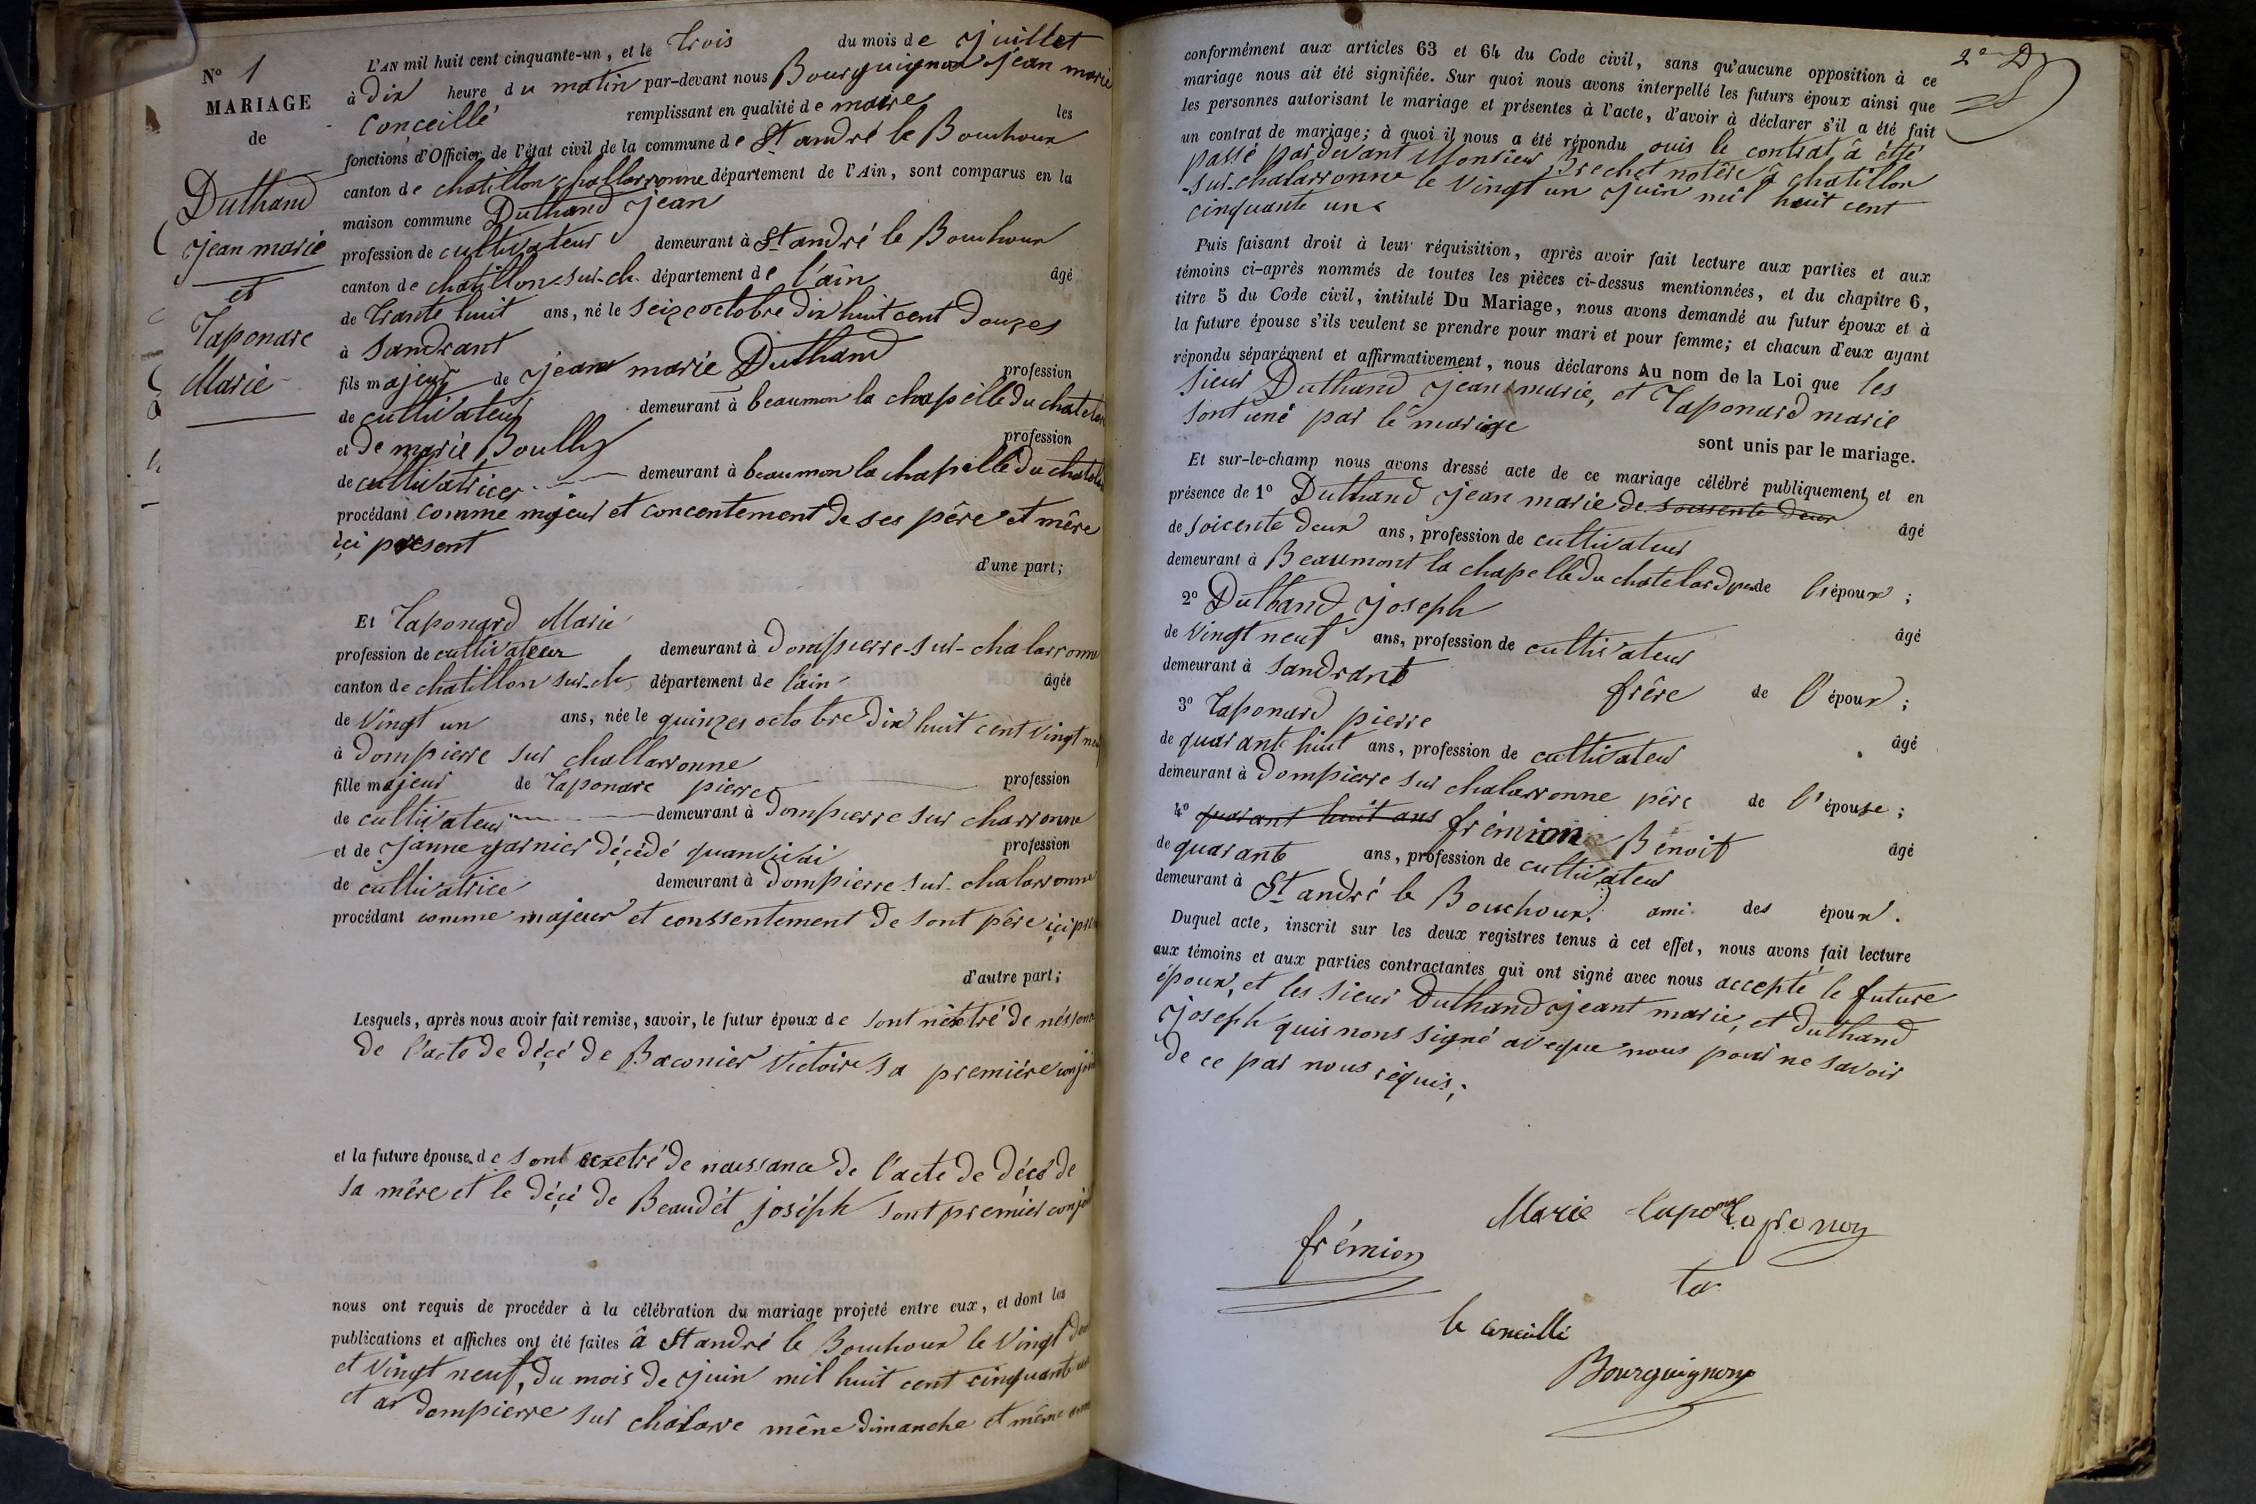 N° 1
MARIAGE
de
Duthand
jean marie
et
Taponare
Marie
L'AN mil huit cent cinquante-un, et le trois du mois de juillet
à dix heure du matin par-devant nous Bourguignon jean marie
Conçeillé remplissant en qualité de maire les
fonctions d'Officier de l'état civil de la commune de St andré le Bouchoux
canton de chatillon challarronne département de l'Ain, sont comparus en la
maison commune Duthand jean
profession de cultivateur demeurant à St andré le Bouchoux
canton de chatillon-sur-ch. département de l'ain âgé
de trante huit ans, né le seize octobre dix huit cent douzes
à Sandrant
fils majeur de jean marie Duthand profession
de cultivateur demeurant à beaumon la chapelle du chatelar
et de marie Boully profession
de cultivatrices demeurant à beaumon la chapelle du chatela
procédant comme majeur et concentement de ses père et mère
içi present
d'une part;
Et Taponard Marie
profession de cultivateur demeurant à dompierre-sur-chalarronne
canton de chatillon sur-ch département de l'ain âgée
de vingt un ans, née le quinzes octobre dix huit cent vingt neuf
à dompierre sur challarronne
fille majeur de Taponare pierre profession
de cultivateur demeurant à dompierre sur charronne
et de janne garnier déçédé quanvivai profession
de cultivatrice demeurant à dompierre-sur-chalarronne
procédant comme majeur et conssentement de sont père içi pre
d'autre part;
Lesquels, après nous avoir fait remise, savoir, le futur époux de sont nextré de néssance
de l'acte de déçé de Baconier victoire sa première conjoin
et la future épouse de sont exetré de naissance de l'acte de déçé de
sa mère et le déçé de Beaudét joséph sont premier conjoi
nous ont requis de procéder à la célébration du mariage projeté entre eux, et dont les
publications et affiches ont été faites â St andré le Bouchoux le vingt deux
et vingt neuf, du mois de juin mil huit cent cinquante un
et as dompierre sur chalarre mêne dimanche et même anné
2e D
conformément aux articles 63 et 64 du Code civil, sans qu'aucune opposition à ce
mariage nous ait été signifiée. Sur quoi nous avons interpellé les futurs époux ainsi que
les personnes autorisant le mariage et présentes à l'acte, d'avoir à déclarer s'il a été fait
un contrat de mariage; à quoi il nous a été répondu ouis le contrat â étté
passé par devant Monsieur Brechet notère à chatillon
-sur-chalarronne le vingt un juin mil huit cent
cinquante un
Puis faisant droit à leur réquisition, après avoir fait lecture aux parties et aux
témoins ci-après nommés de toutes les pièces ci-dessus mentionnées, et du chapitre 6,
titre 5 du Code civil, intitulé Du Mariage, nous avons demandé au futur époux et à
la future épouse s'ils veulent se prendre pour mari et pour femme; et chacun d'eux ayant
répondu séparément et affirmativement, nous déclarons Au nom de la Loi que les
sieur Duthand jean marie, et Taponard marie
sont uné par le mariage
sont unis par le mariage.
Et sur-le-champ nous avons dressé acte de ce mariage célébré publiquement et en
présence de 1° Duthand jean marie de soissente deux âgé
de soicente deux ans, profession de cultivateur
demeurant à Beaumont la chapelle du chatelard père de l'époux;
2° Duthand joseph âgé
de vingt neuf ans, profession de cultivateur
demeurant à Sandrant frère de l'époux;
3° Taponard pierre âgé
de quarante huit ans, profession de cultivateur
demeurant à dompierre sur chalarronne père de l'épouse;
4° quarant huit ans frémion Benoit âgé
de quarante ans, profession de cultivateur
demeurant à St andré le Bouchoux. ami des époux.
Duquel acte, inscrit sur les deux registres tenus à cet effet, nous avons fait lecture
aux témoins et aux parties contractantes qui ont signé avec nous accepté le future
époux, et les sieur Duthand jeant marie, et duthand
joseph quis nons signé aveque nous pour ne savoir
de ce par nous réquis;
Marie tapon
frémion
le conceillé
Bourguignon